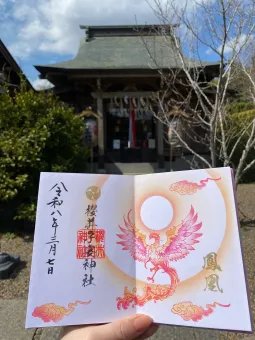 令和八年三月七日
櫻井子安神社
鳳凰